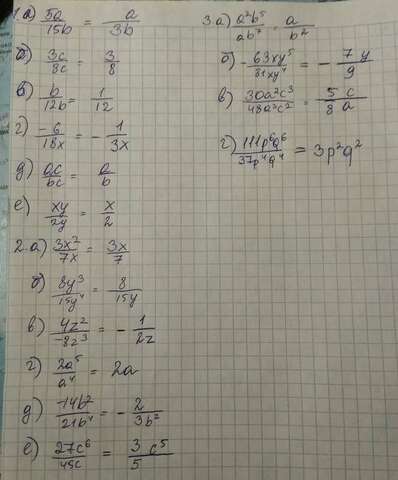 1.а) 5a/15b = a/3b
б) 3c/8c = 3/8
в) b/12b = 1/12
г) -6/18x = - 1/3x
д) ac/bc = a/b
е) xy/2y = x/2
2.а) 3x²/7x = 3x/7
б) 8y³/15y⁴ = 8/15y
в) 4z²/-8z³ = - 1/2z
г) 2a⁵/a⁴ = 2a
д) -14b²/21b⁴ = - 2/3b²
е) 27c⁶/45c = 3 c⁵/5
3.а) a²b⁵/ab⁷ = a/b²
б) - 63xy⁵/81xy⁴ = - 7y/9
в) 30a²c³/48a³c² = 5 c/8 a
г) 111p⁶q⁶/37p⁴q⁴ = 3p²q²